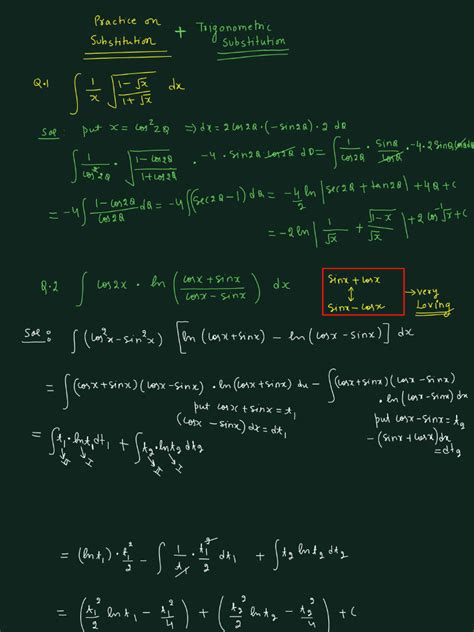 Practice on Substitution + Trigonometric Substitution
Q.1 ∫ 1/x √((1-√x)/(1+√x)) dx
Sol: put x = cos²2θ ⇒ dx = 2cos2θ·(-sin2θ)·2 dθ
∫ 1/cos²2θ · √((1-cos2θ)/(1+cos2θ)) · -4·sin2θ cos2θ dθ = ∫ 1/cos2θ · sinθ/cosθ · -4·2sinθcosθ dθ
= -4∫ (1-cos2θ)/cos2θ dθ = -4∫(sec2θ-1)dθ = -4/2 ln|sec2θ+tan2θ| + 4θ + C
= -2ln|1/√x + √(1-x)/√x| + 2cos⁻¹√x + C
Q.2 ∫ cos2x · ln((cosx+sinx)/(cosx-sinx)) dx
sinx+cosx
↕
sinx-cosx
→ very Loving
Sol: ∫(cos²x-sin²x) [ln(cosx+sinx) - ln(cosx-sinx)] dx
= ∫(cosx+sinx)(cosx-sinx)·ln(cosx+sinx) dx - ∫(cosx+sinx)(cosx-sinx)
·ln(cosx-sinx)dx
put cosx+sinx = t₁
(cosx-sinx)dx = dt₁
put cosx-sinx = t₂
-(sinx+cosx)dx = dt₂
= ∫t₁·lnt₁dt₁ + ∫t₂·lnt₂dt₂
II I II I
= (lnt₁)·t₁²/2 - ∫ 1/t₁·t₁²/2 dt₁ + ∫t₂lnt₂dt₂
= (t₁²/2 lnt₁ - t₁²/4) + (t₂²/2 lnt₂ - t₂²/4) + C